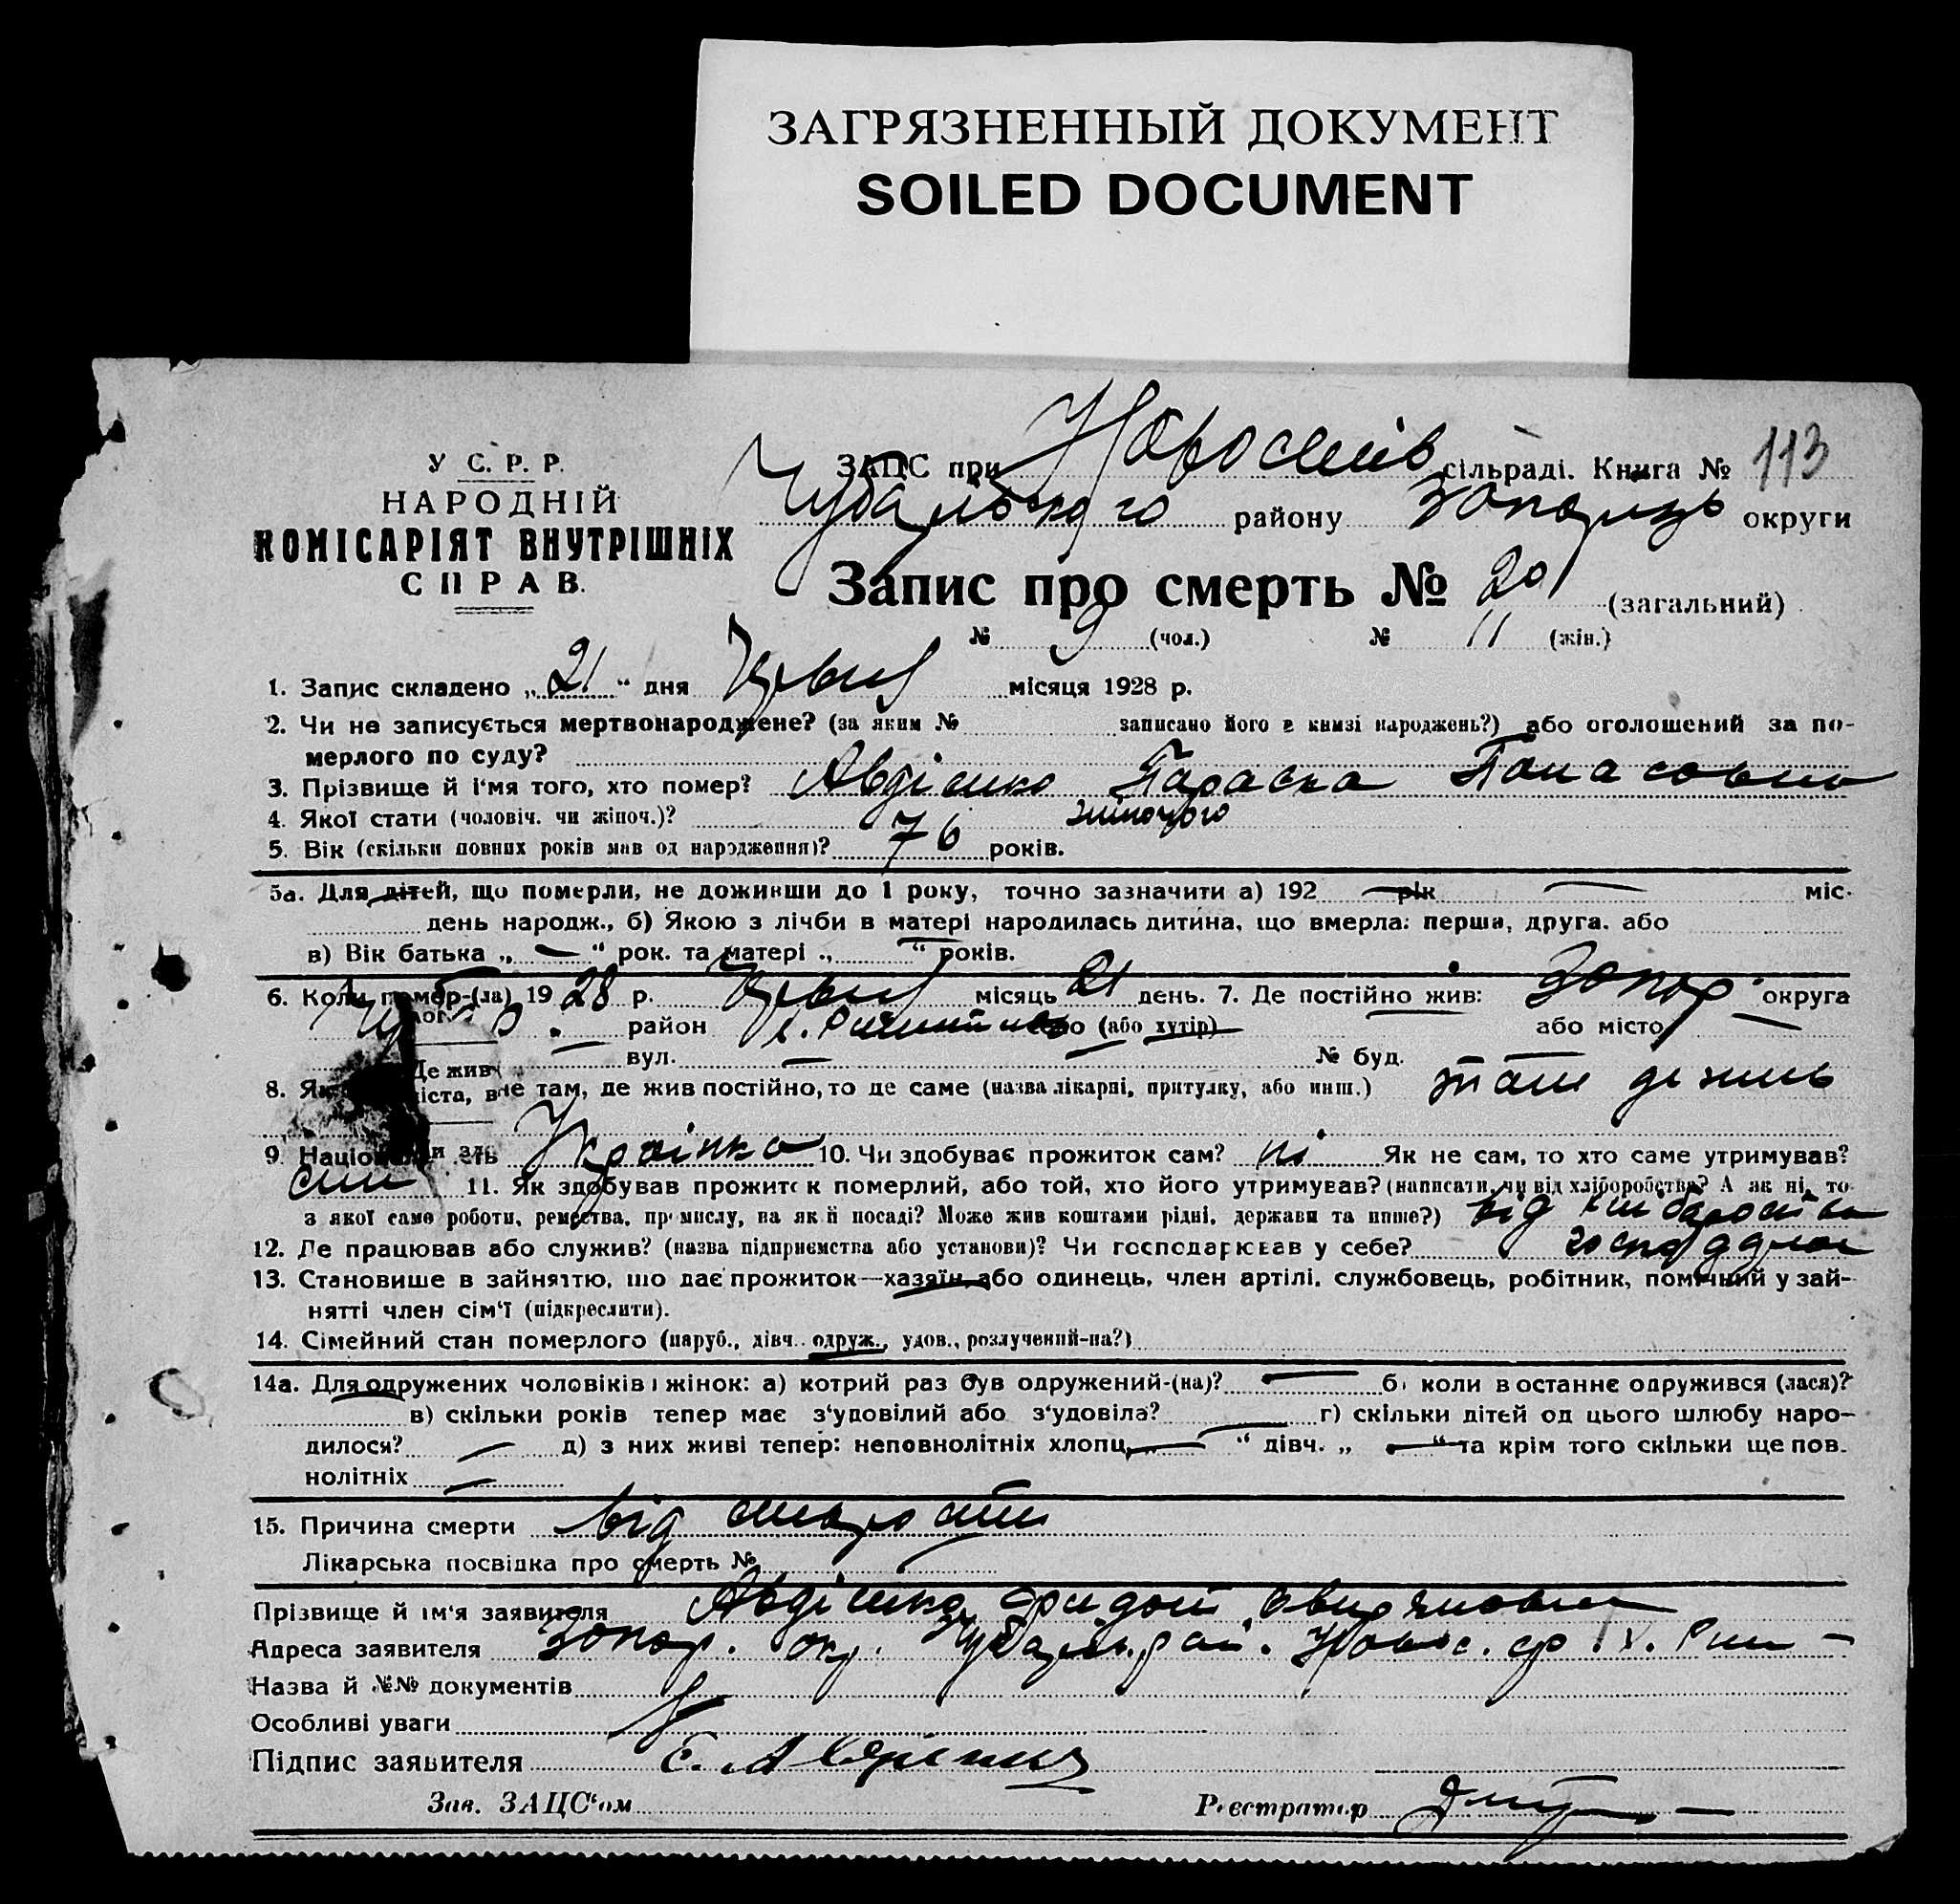 ЗАГРЯЗНЕННЫЙ ДОКУМЕНТ
SOILED DOCUMENT
У С. Р. Р.
НАРОДНІЙ
КОМІСАРІЯТ ВНУТРІШНІХ
СПРАВ.
ЗАЦС при сільраді. Книга № 113
району округи
Запис про смерть № 20 (загальний)
№ 9 (чол.) № 11 (жін.)
1. Запис складено „ 21 “ дня місяця 1928 р.
2. Чи не записується мертвонароджене? (за яким № записано його в книзі народжень?) або оголошений за по-
мерлого по суду?
3. Прізвище й і'мя того, хто помер? Авдієнко Параска Панасовна
4. Якої стати (чоловіч. чи жіноч.)? жіночого
5. Вік (скільки повних років мав од народження)? 76 років.
5а. Для дітей, що померли, не доживши до 1 року, точно зазначити а) 192 рік міс.
день народж., б) Якою з лічби в матері народилась дитина, що вмерла: перша, друга, або
в) Вік батька „ — “ рок. та матері „ — “ років.
6. Коли помер-(ла) 19 28 р. місяць 21 день. 7. Де постійно жив: Запор. округа
район (або хутір) або місто
вул. — № буд.
Де жив
8. міста, не там, де жив постійно, то де саме (назва лікарні, притулку, або инш.) там де жив
9. Націо Українка 10. Чи здобуває прожиток сам? ні Як не сам, то хто саме утримував?
син 11. Як здобував прожиток померлий, або той, хто його утримував? (написати, чи від хліборобства? А як ні, то
з якої саме роботи, ремества, промислу, на якій посаді? Може жив коштами рідні, держави та инше?) від хліборобства
12. Де працював або служив? (назва підприємства або установи)? Чи господарював у себе?
13. Становише в зайняттю, що дає прожиток—хазяїн, або одинець, член артілі, службовець, робітник, помічний у зай-
нятті член сім'ї (підкреслити).
14. Сімейний стан померлого (паруб., дівч., одруж., удов., розлучений-на?)
14а. Для одружених чоловіків і жінок: а) котрий раз був одружений-(на)? — б) коли востаннє одружився (лася)?
в) скільки років тепер має з'удовілий або з'удовіла? г) скільки дітей од цього шлюбу наро-
дилося? — д) з них живі тепер: неповнолітніх хлопц. „ — “ дівч. „ — “ та крім того скільки ще пов-
нолітніх —
15. Причина смерти від старости
Лікарська посвідка про смерть №
Прізвище й ім'я заявителя Авдієнко
Адреса заявителя Запор. окр.
Назва й №№ документів
Особливі уваги
Підпис заявителя
Зав. ЗАЦС'ом Реєстратор